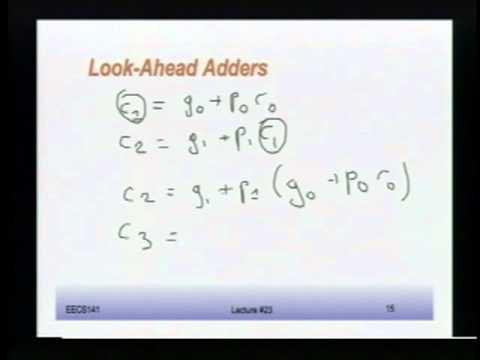 Look-Ahead Adders
c₁ = g₀ + p₀ c₀
c₂ = g₁ + p₁ c₁
c₂ = g₁ + p₁ (g₀ + p₀ c₀)
c₃ =
EECS141 Lecture #23 15